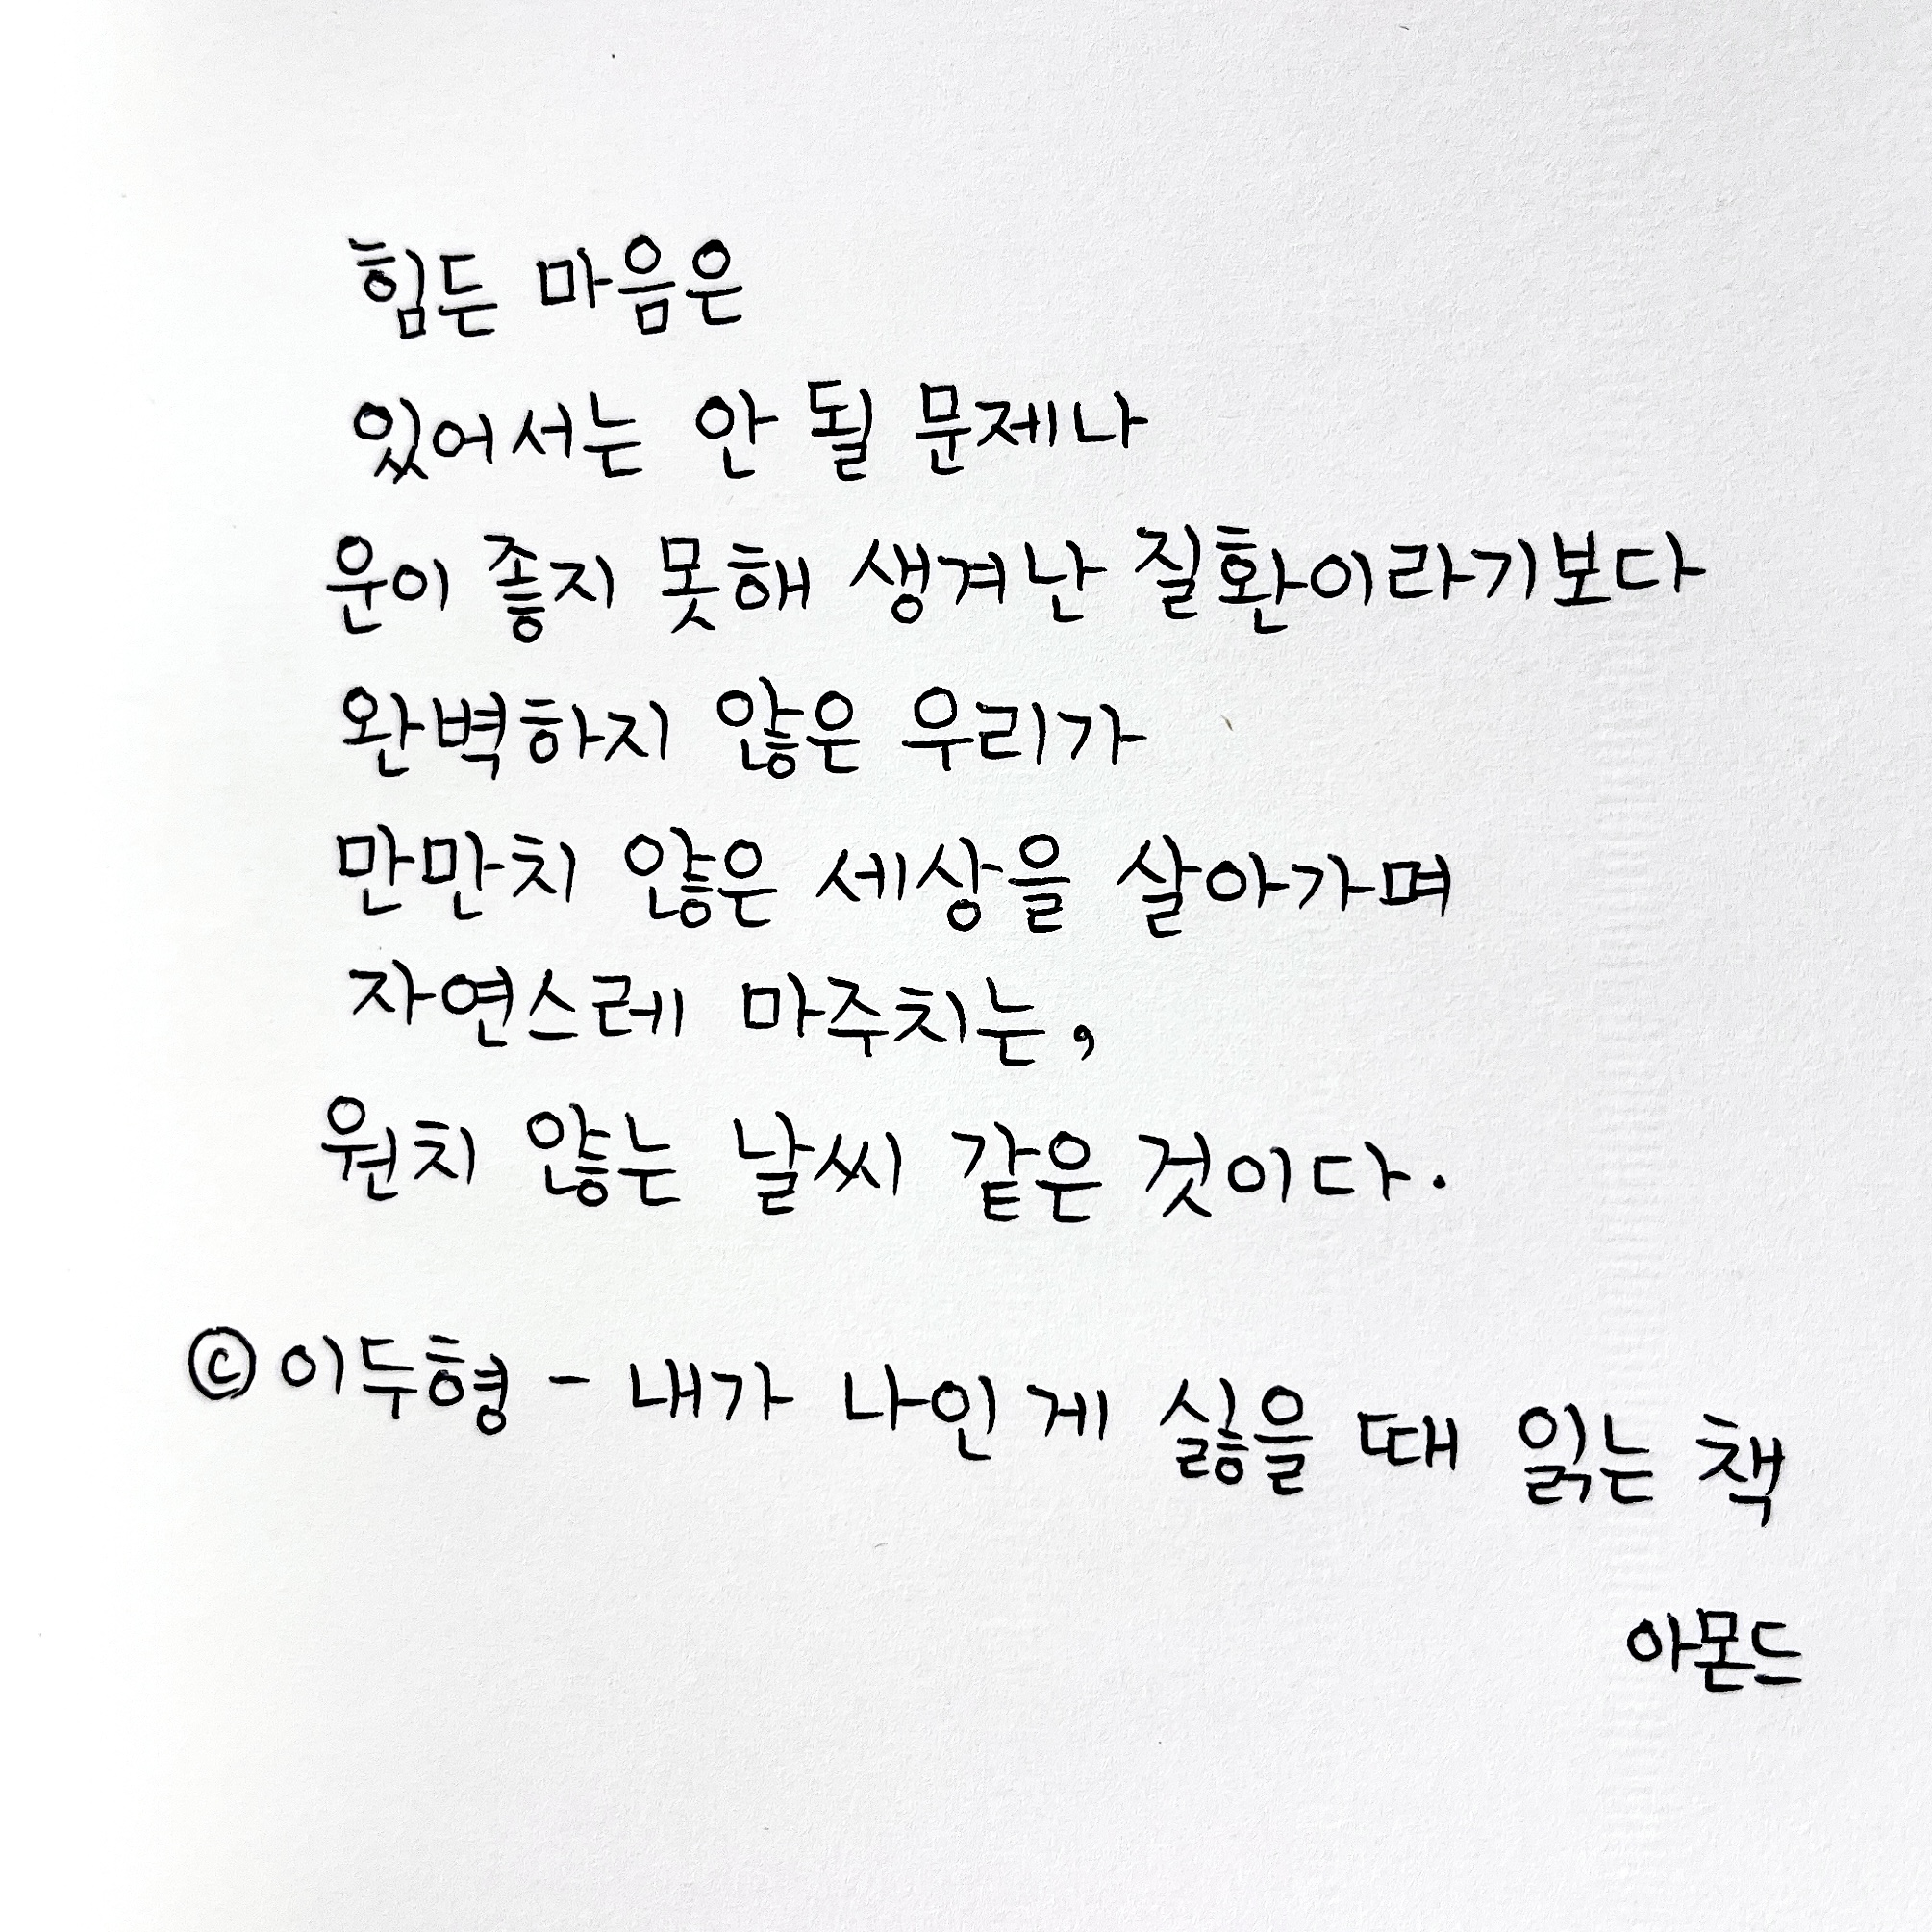 힘든 마음은
있어서는 안 될 문제나
운이 좋지 못해 생겨난 질환이라기보다
완벽하지 않은 우리가
만만치 않은 세상을 살아가며
자연스레 마주치는,
원치 않는 날씨 같은 것이다.
ⓒ 이두형 - 내가 나인 게 싫을 때 읽는 책
아몬드